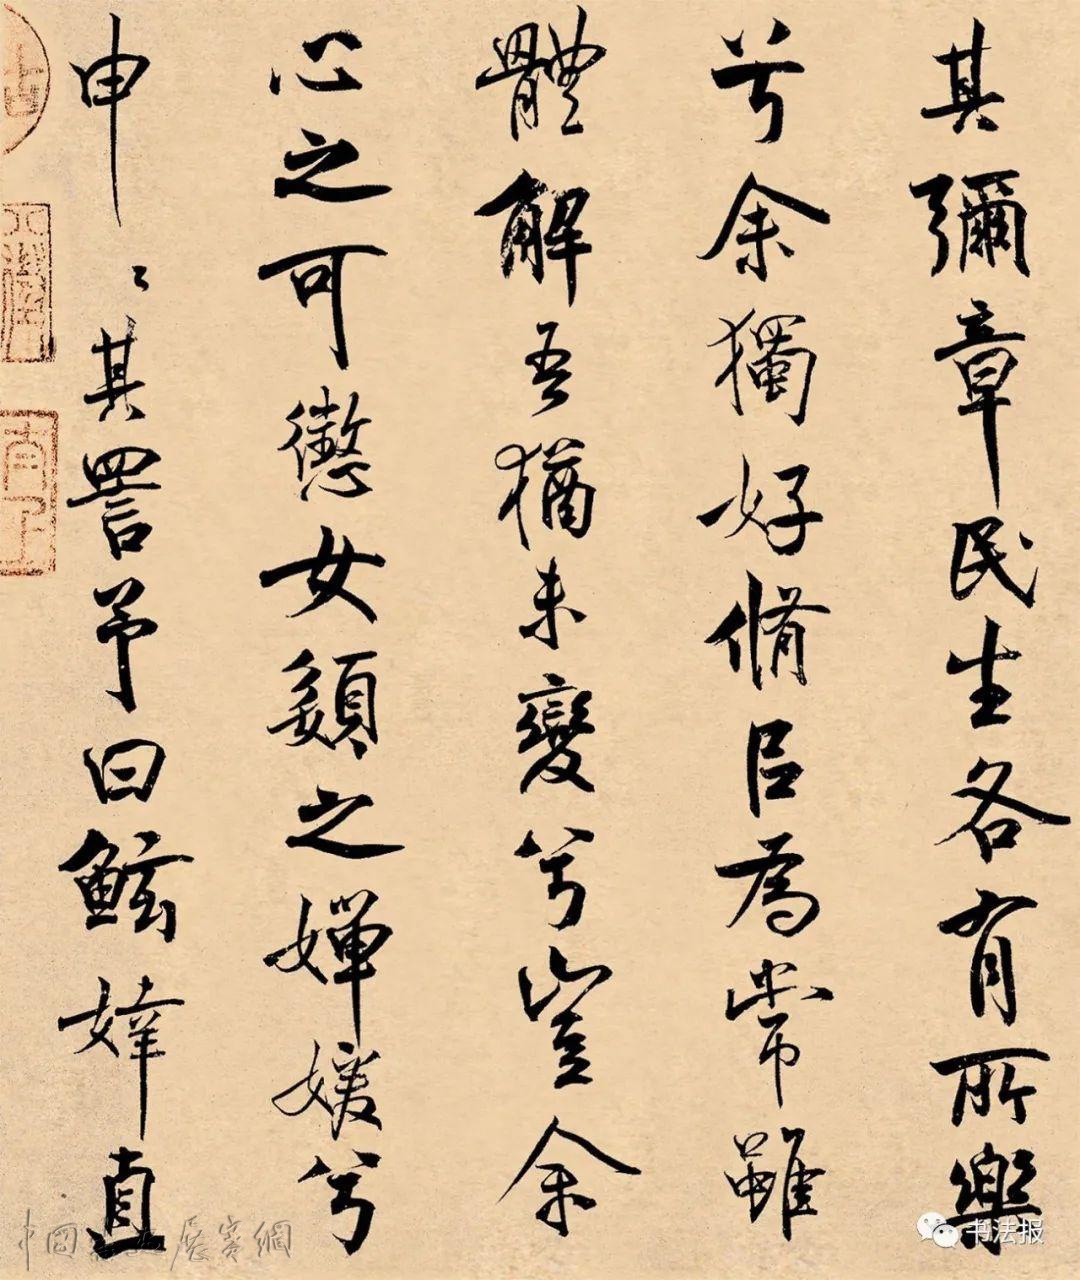 其彌章民生各有所樂
兮余獨好脩㠯為常雖
體解吾猶未變兮豈余
心之可懲女頦之嬋媛兮
申〻其詈予曰鮌婞直
书法报